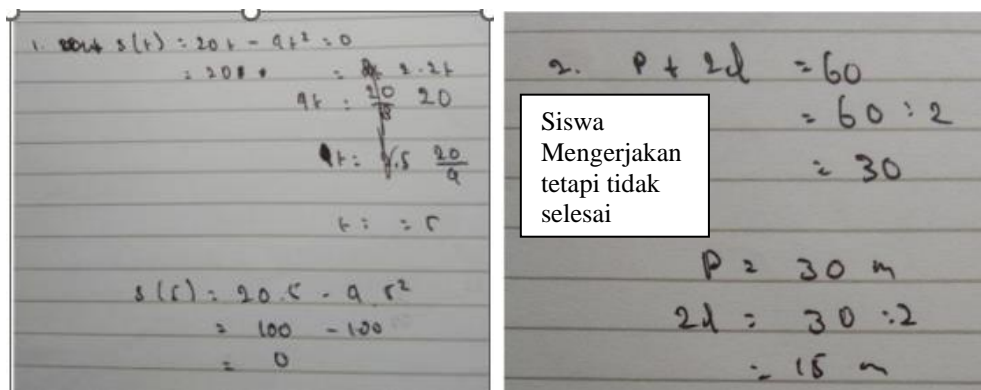 1. s(t) = 20t - 4t² = 0
= 20
4t = 20
t = 20/4
t = = 5
s(5) = 20.5 - 4 5²
= 100 - 100
= 0
2. P + 2d = 60
= 60 : 2
= 30
Siswa
Mengerjakan
tetapi tidak
selesai
P = 30 m
2d = 30 : 2
= 15 m